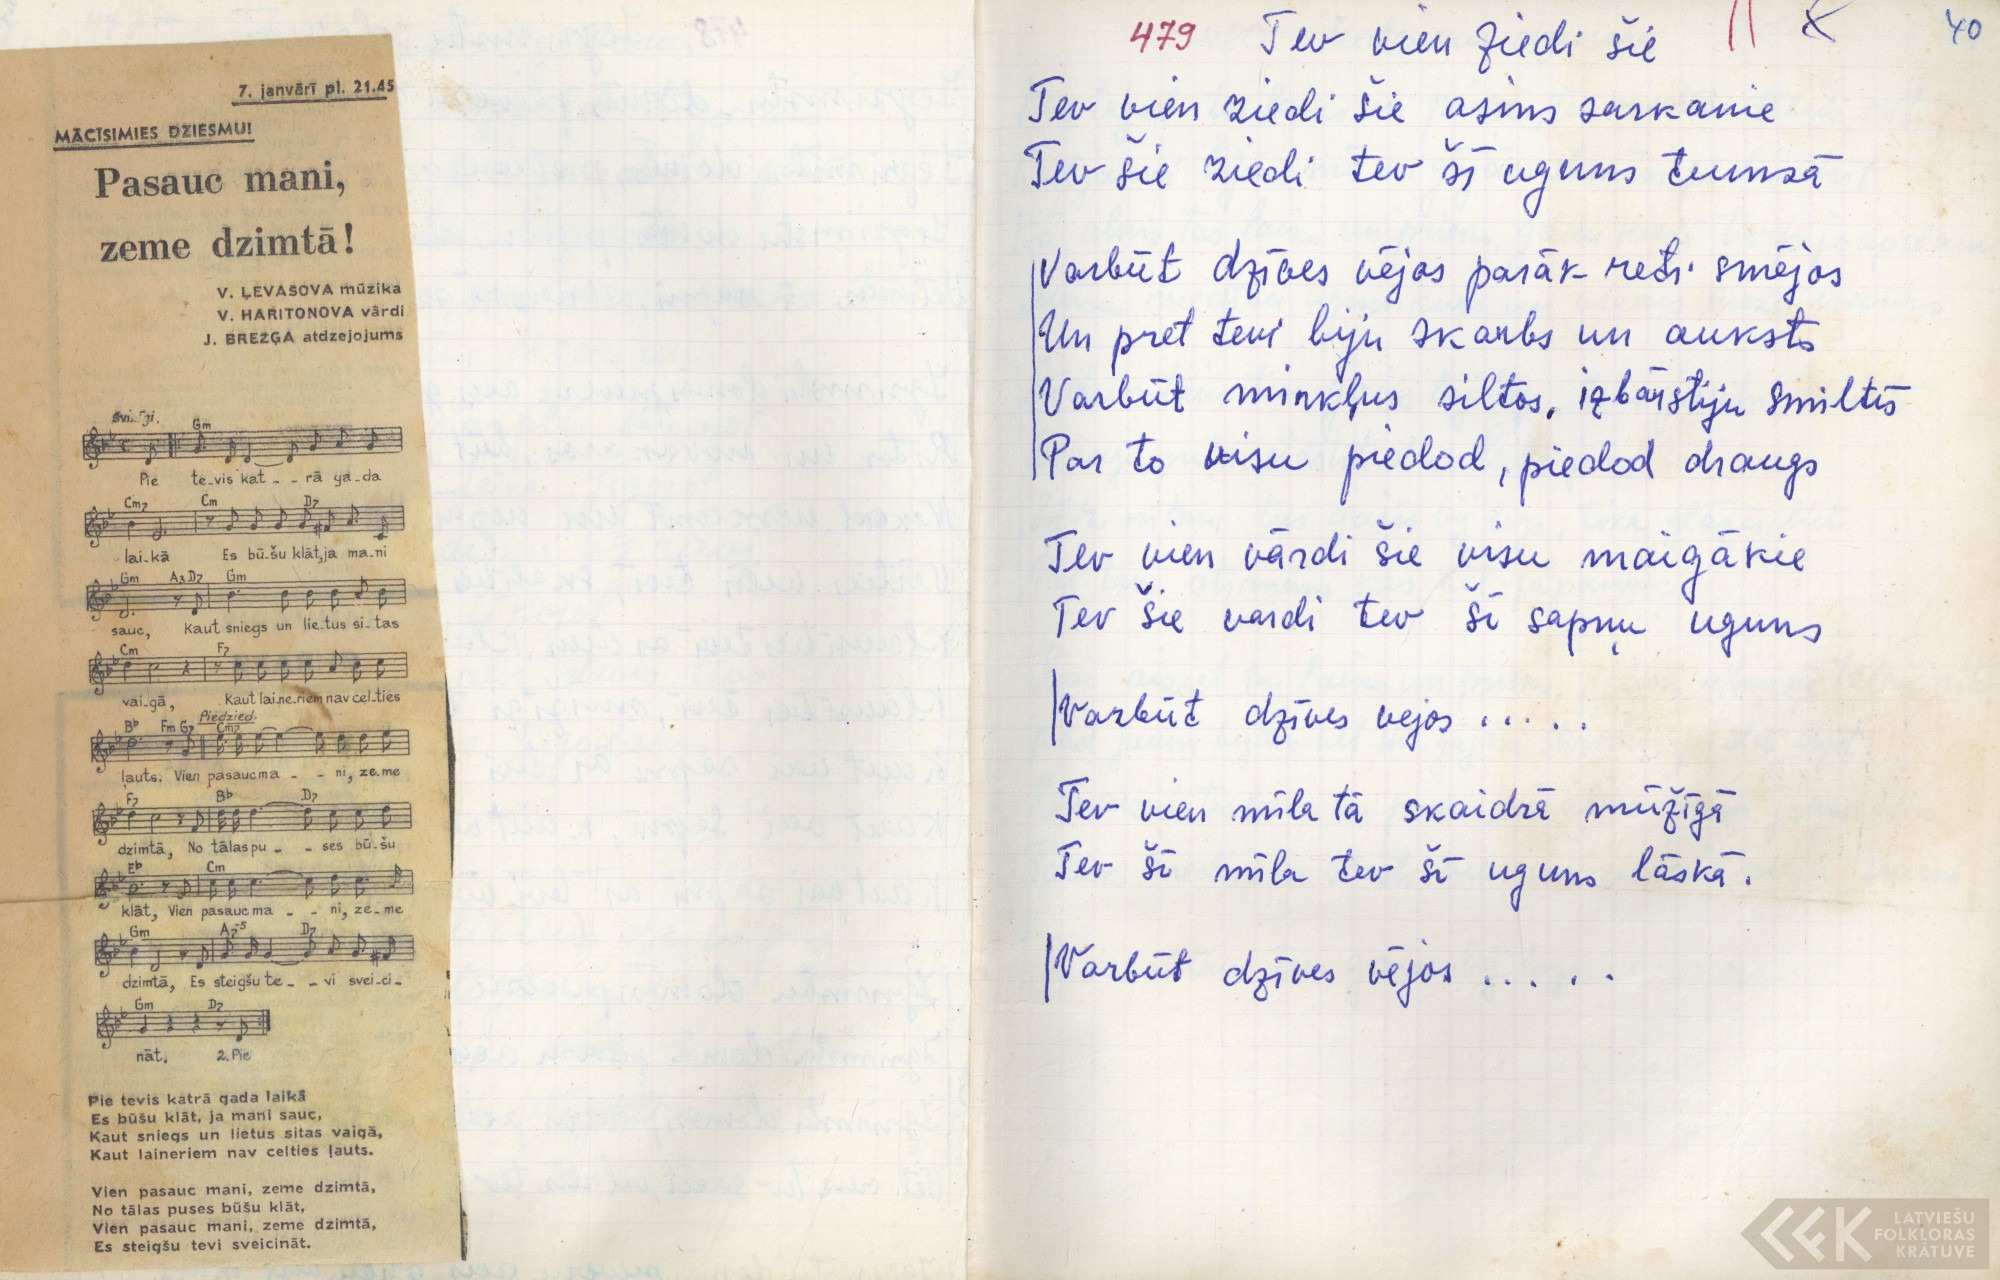 7. janvārī pl. 21.45
MĀCĪSIMIES DZIESMU!
Pasauc mani,
zeme dzimtā!
V. ĻEVAŠOVA mūzika
V. HARITONOVA vārdi
J. BREŽĢA atdzejojums
Gm
Pie te-vis kat - - rā ga-da
Cm7 Cm D7
lai-kā Es bū-šu klāt, ja ma-ni
Gm A3 D7 Gm
sauc, Kaut sniegs un lie-tus si-tas
Cm F7
vai-gā, Kaut lai-ne-riem nav cel-ties
Piedzied.
Bb Fm G7 Cm7
ļauts. Vien pasauc ma - - ni, ze-me
F7 Bb D7
dzimtā, No tālas pu - - ses bū-šu
Eb Cm
klāt, Vien pasauc ma - - ni, ze-me
Gm A7-5 D7
dzimtā, Es steigšu te - - vi svei-ci-
Gm D7
nāt. 2. Pie
Pie tevis katrā gada laikā
Es būšu klāt, ja mani sauc,
Kaut sniegs un lietus sitas vaigā,
Kaut laineriem nav celties ļauts.
Vien pasauc mani, zeme dzimtā,
No tālas puses būšu klāt,
Vien pasauc mani, zeme dzimtā,
Es steigšu tevi sveicināt.
479 Tev vien ziedi šie 40
Tev vien ziedi šie asins sarkanie
Tev šie ziedi tev šī uguns tumsā
Varbūt dzīves vējos parāk reti smējos
Un pret tevi biju skarbs un auksts
Varbūt minkļus siltos, izbārstiju smiltīs
Par to visu piedod, piedod draugs
Tev vien vārdi šie visu maigākie
Tev šie vardi tev šī sapņu uguns
Varbūt dzīves vejos .....
Tev vien mīla tā skaidrā mūžīgā
Tev šī mīla tev šī uguns lāskā.
Varbūt dzīves vējos .....
LATVIEŠU
FOLKLORAS
KRĀTUVE